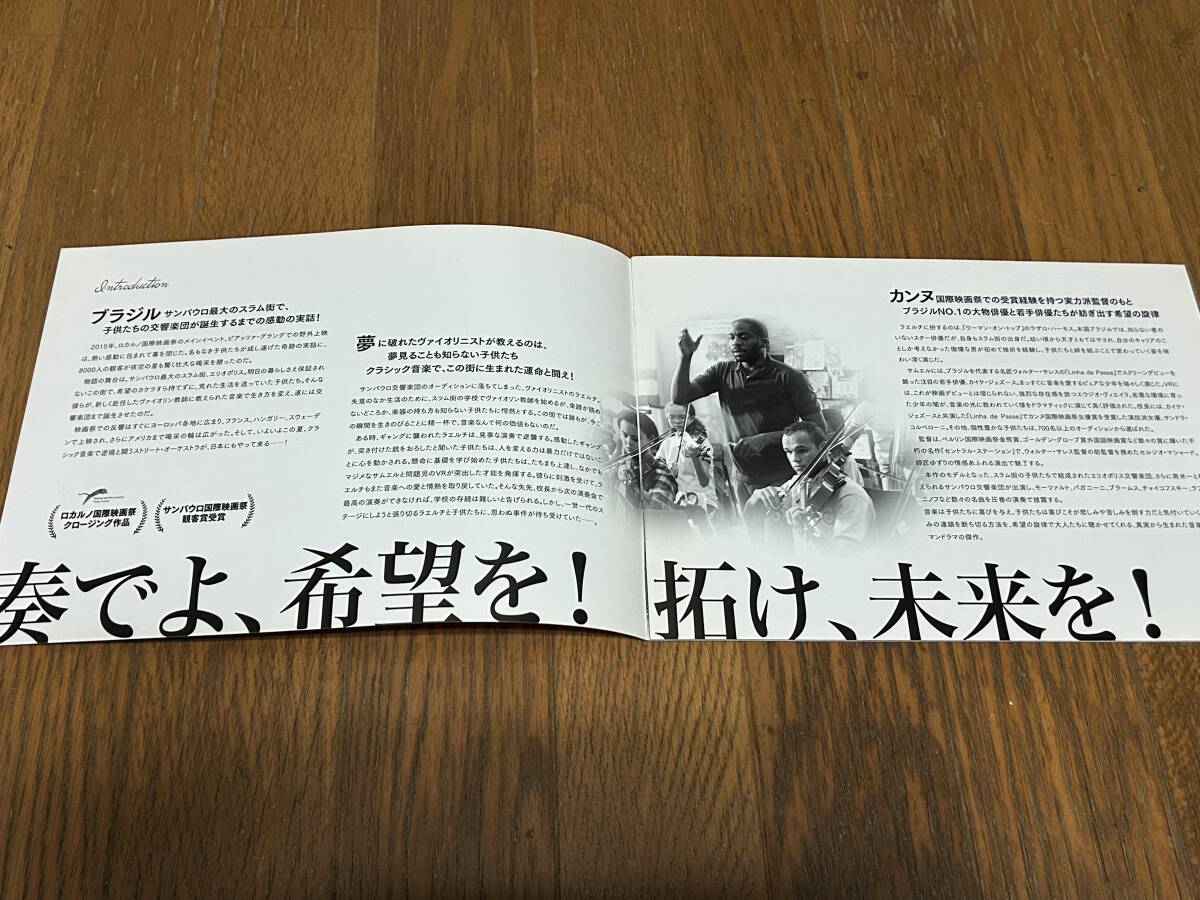 Introduction
ブラジル サンパウロ最大のスラム街で、
子供たちの交響楽団が誕生するまでの感動の実話！
2015年、ロカルノ国際映画祭のメインイベント、ピアッツァ・グランデでの野外上映
は、熱い感動に包まれて幕を閉じた。名もなき子供たちが成し遂げた奇跡の実話に、
8000人の観客が夜空の星も驚く壮大な喝采を贈ったのだ。
物語の舞台は、サンパウロ最大のスラム街、エリオポリス。明日の暮らしさえ保証され
ないこの街で、希望のカケラすら持てずに、荒れた生活を送っていた子供たち。そんな
彼らが、新しく赴任したヴァイオリン教師に教えられた音楽で生き方を変え、遂には交
響楽団まで誕生させたのだ。
映画祭での反響はすぐにヨーロッパ各地に広まり、フランス、ハンガリー、スウェーデ
ンで上映され、さらにアメリカまで喝采の輪は広がった。そして、いよいよこの夏、クラ
シック音楽で逆境と闘うストリート・オーケストラが、日本にもやって来る——！
ロカルノ国際映画祭
クロージング作品
サンパウロ国際映画祭
観客賞受賞
夢に破れたヴァイオリニストが教えるのは、
夢見ることも知らない子供たち
クラシック音楽で、この街に生まれた運命と闘え！
サンパウロ交響楽団のオーディションに落ちてしまった、ヴァイオリニストのラエルチ。
失意のなか生活のために、スラム街の学校でヴァイオリン教師を始めるが、楽器が読め
ないどころか、楽器の持ち方も知らない子供たちに愕然とする。この街では誰もが、今こ
の瞬間を生きのびることに精一杯で、音楽なんて何の価値もないのだ。
ある時、ギャングに襲われたラエルチは、見事な演奏で逆襲する。感動したギャング
が、突き付けた銃をおろしたと聞いた子供たちは、人を変える力は暴力だけではないこ
とに心動かされる。懸命に基礎を学び始めた子供たちは、たちまち上達し、なかでも
マジメなサムエルと問題児のVRが突出した才能を発揮する。彼らに刺激を受けて、ラ
エルチもまた音楽への愛と情熱を取り戻していた。そんな矢先、校長から次の演奏会で
最高の演奏ができなければ、学校の存続は難しいと告げられる。しかし、一世一代のス
テージにしようと張り切るラエルチと子供たちに、思わぬ事件が待ち受けていた——。
カンヌ国際映画祭での受賞経験を持つ実力派監督のもと
ブラジルNO.1の大物俳優と若手俳優たちが紡ぎ出す希望の旋律
ラエルチに扮するのは、『ウーマン・オン・トップ』のラザロ・ハーモス。本国ブラジルでは、知らない者の
いないスター俳優だが、自身もスラム街の出身だ。幼い頃から天才ともてはやされ、自分のキャリアのこ
としか考えなかった傲慢な男が初めて挫折を経験し、子供たちと絆を結ぶことで変わっていく姿を味
わい深く演じた。
サムエルには、ブラジルを代表する名匠ウォルター・サレスの『Linha de Passe』でスクリーンデビューを
飾った注目の若手俳優、カイケ・ジェズース。まっすぐに音楽を愛するピュアな少年を瑞々しく演じた。VRに
は、これが映画デビューとは信じられない、強烈な存在感を放つエウジオ・ヴィエイラ。劣悪な環境に育っ
た少年の闇が、音楽の光に救われていく様をドラマティックに演じて高く評価された。校長には、カイケ・
ジェズースと共演した『Linha de Passe』でカンヌ国際映画祭女優賞を受賞した演技派女優、サンドラ・
コルベローニ。その他、個性豊かな子供たちは、700名以上のオーディションから選ばれた。
監督は、ベルリン国際映画祭金熊賞、ゴールデン・グローブ賞外国語映画賞など数々の賞に輝いた不
朽の名作『セントラル・ステーション』で、ウォルター・サレス監督の助監督を務めたセルジオ・マシャード。
師匠ゆずりの情感あふれる演出で魅了する。
本作のモデルとなった、スラム街の子供たちで結成されたエリオポリス交響楽団、さらに南米一と称
えられるサンパウロ交響楽団が出演し、モーツァルト、パガニーニ、ブラームス、チャイコフスキー、ラフマ
ニノフなど数々の名曲を圧巻の演奏で披露する。
音楽は子供たちに喜びを与え、子供たちは喜びこそが悲しみや苦しみを倒す力だと気付いていく
みの連鎖を断ち切る方法を、希望の旋律で大人たちに聴かせてくれる、真実から生まれた音楽
マンドラマの傑作。
奏でよ、希望を！ 拓け、未来を！